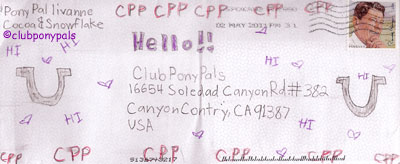 PonyPal livanne
Cocoa & Snowflake
©clubponypals
CPP CPP CPP CPP CPP CPP
02 MAY 2011 PM 3 1
Hello!!
HI
HI
HI
HI
HI
HI
Club Pony Pals
16654 Soledad Canyon Rd # 382
Canyon Contry, CA 91387
USA
CPP CPP CPP CPP CPP